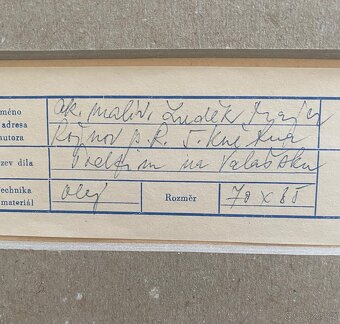 méno
adresa
autora
ak. malíř. Luděk
Rožnov p. R. 5. Května
zev díla
Podzim na Valašsku
echnika
materiál
olej
Rozměr
70 x 85